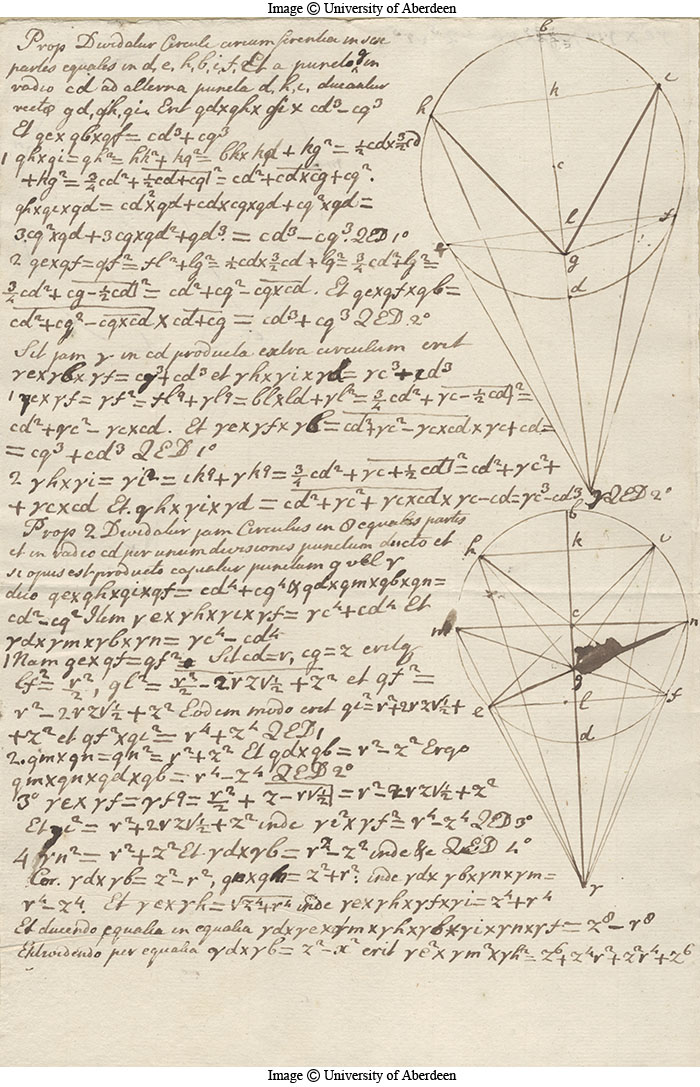 Image © University of Aberdeen
Prop Dividatur Circuli circumferentia in sex
partes equales in d, e, h, b, i, f, Et a puncto g in
radio cd ad alterna puncta d, h, i, ducantur
rectæ gd, gh, gi. Erit gd×gh×gi = cd³−cg³
Et ge×gb×gf = cd³+cg³
1 gh×gi = gh² = hk²+kg² = bk×kd + kg² = ½cd×3/2cd
+kg² = ¾cd² + ½cd+cg|² = cd²+cd×cg+cg².
gh×gi×gd = cd²×gd+cd×cg×gd+cg²×gd =
3cg²×gd+3cg×gd²+gd³ = cd³−cg³. QED 1º
2 ge×gf = gf² = fl²+lg² = ½cd×3/2cd+lg² = ¾cd²+lg² =
¾cd²+cg−½cd|² = cd²+cg²−cg×cd. Et ge×gf×gb =
cd²+cg²−cg×cd×cd+cg = cd³+cg³ QED. 2º
Sit jam γ in cd producta extra circulum erit
γe×γb×γf = cγ³+cd³ et γh×γi×γd = γc³ cd³
1 γe×γf = γf² = fl²+γl² = bl×ld+γl² = ¾cd²+γc−½cd|² =
cd²+γc²−γc×cd. Et γe×γf×γb = cd²+γc²−γc×cd×γc+cd =
= cγ³+cd³ QED 1º
2 γh×γi = γi² = ik²+γk² = ¾cd²+γc+½cd|² = cd²+γc²+
+γc×cd Et. γh×γi×γd = cd²+γc²+γc×cd×γc−cd = γc³−cd³ QED 2º
Prop 2 Dividatur jam Circulus in 8 equales partes
et in radio cd per unum divisionis punctum ducto et
si opus est producto capiatur punctum g vel γ
dico ge×gh×gi×gf = cd⁴+cg⁴ & gd×gm×gb×gn =
cd⁴−cg⁴ Item γe×γh×γi×γf = γc⁴+cd⁴ Et
γd×γm×γb×γn = γc⁴−cd⁴
1 Nam ge×gf = gf² Sit cd=r, cg=z erit
lf² = r²/2, gl² = r²/2−2rz√½+z² et gf² =
r²−2rz√½+z² Eodem modo erit gi² = r²+2rz√½+
+z² et gf²×gi² = r⁴+z⁴ QED 1
2. gm×gn = gn² = r²+z² Et gd×gb = r²−z² Ergo
gm×gn×gd×gb = r⁴−z⁴ QED 2º
3º γe×γf = γf² = r²/2 + z−r√½|² = r²−2rz√½+z²
Et γi² = r²+2rz√½+z² inde γi²×γf² = r⁴−z⁴ QED 3º
4 γn² = r²+z² Et γd×γb = r²−z² inde &c QED 4º
Cor. γd×γb = z²−r², = z²+r² inde γd×γb×γn×γm =
r⁴−z⁴. Et γe×γh = √z⁴+r⁴ inde γe×γh×γf×γi = z⁴+r⁴
Et ducendo equalia in equalia γd×γe×γm×γh×γb×γi×γn×γf = z⁸−r⁸
Et dividendo per equalia γd×γb = z²−x² erit γe²×γm²×γh² = z⁶+z⁴r²+z²r⁴+z⁶
b
k
i
h
c
l
f
e
g
d
γ
b
k
i
h
c
m
n
g
l
f
e
d
γ
Image © University of Aberdeen